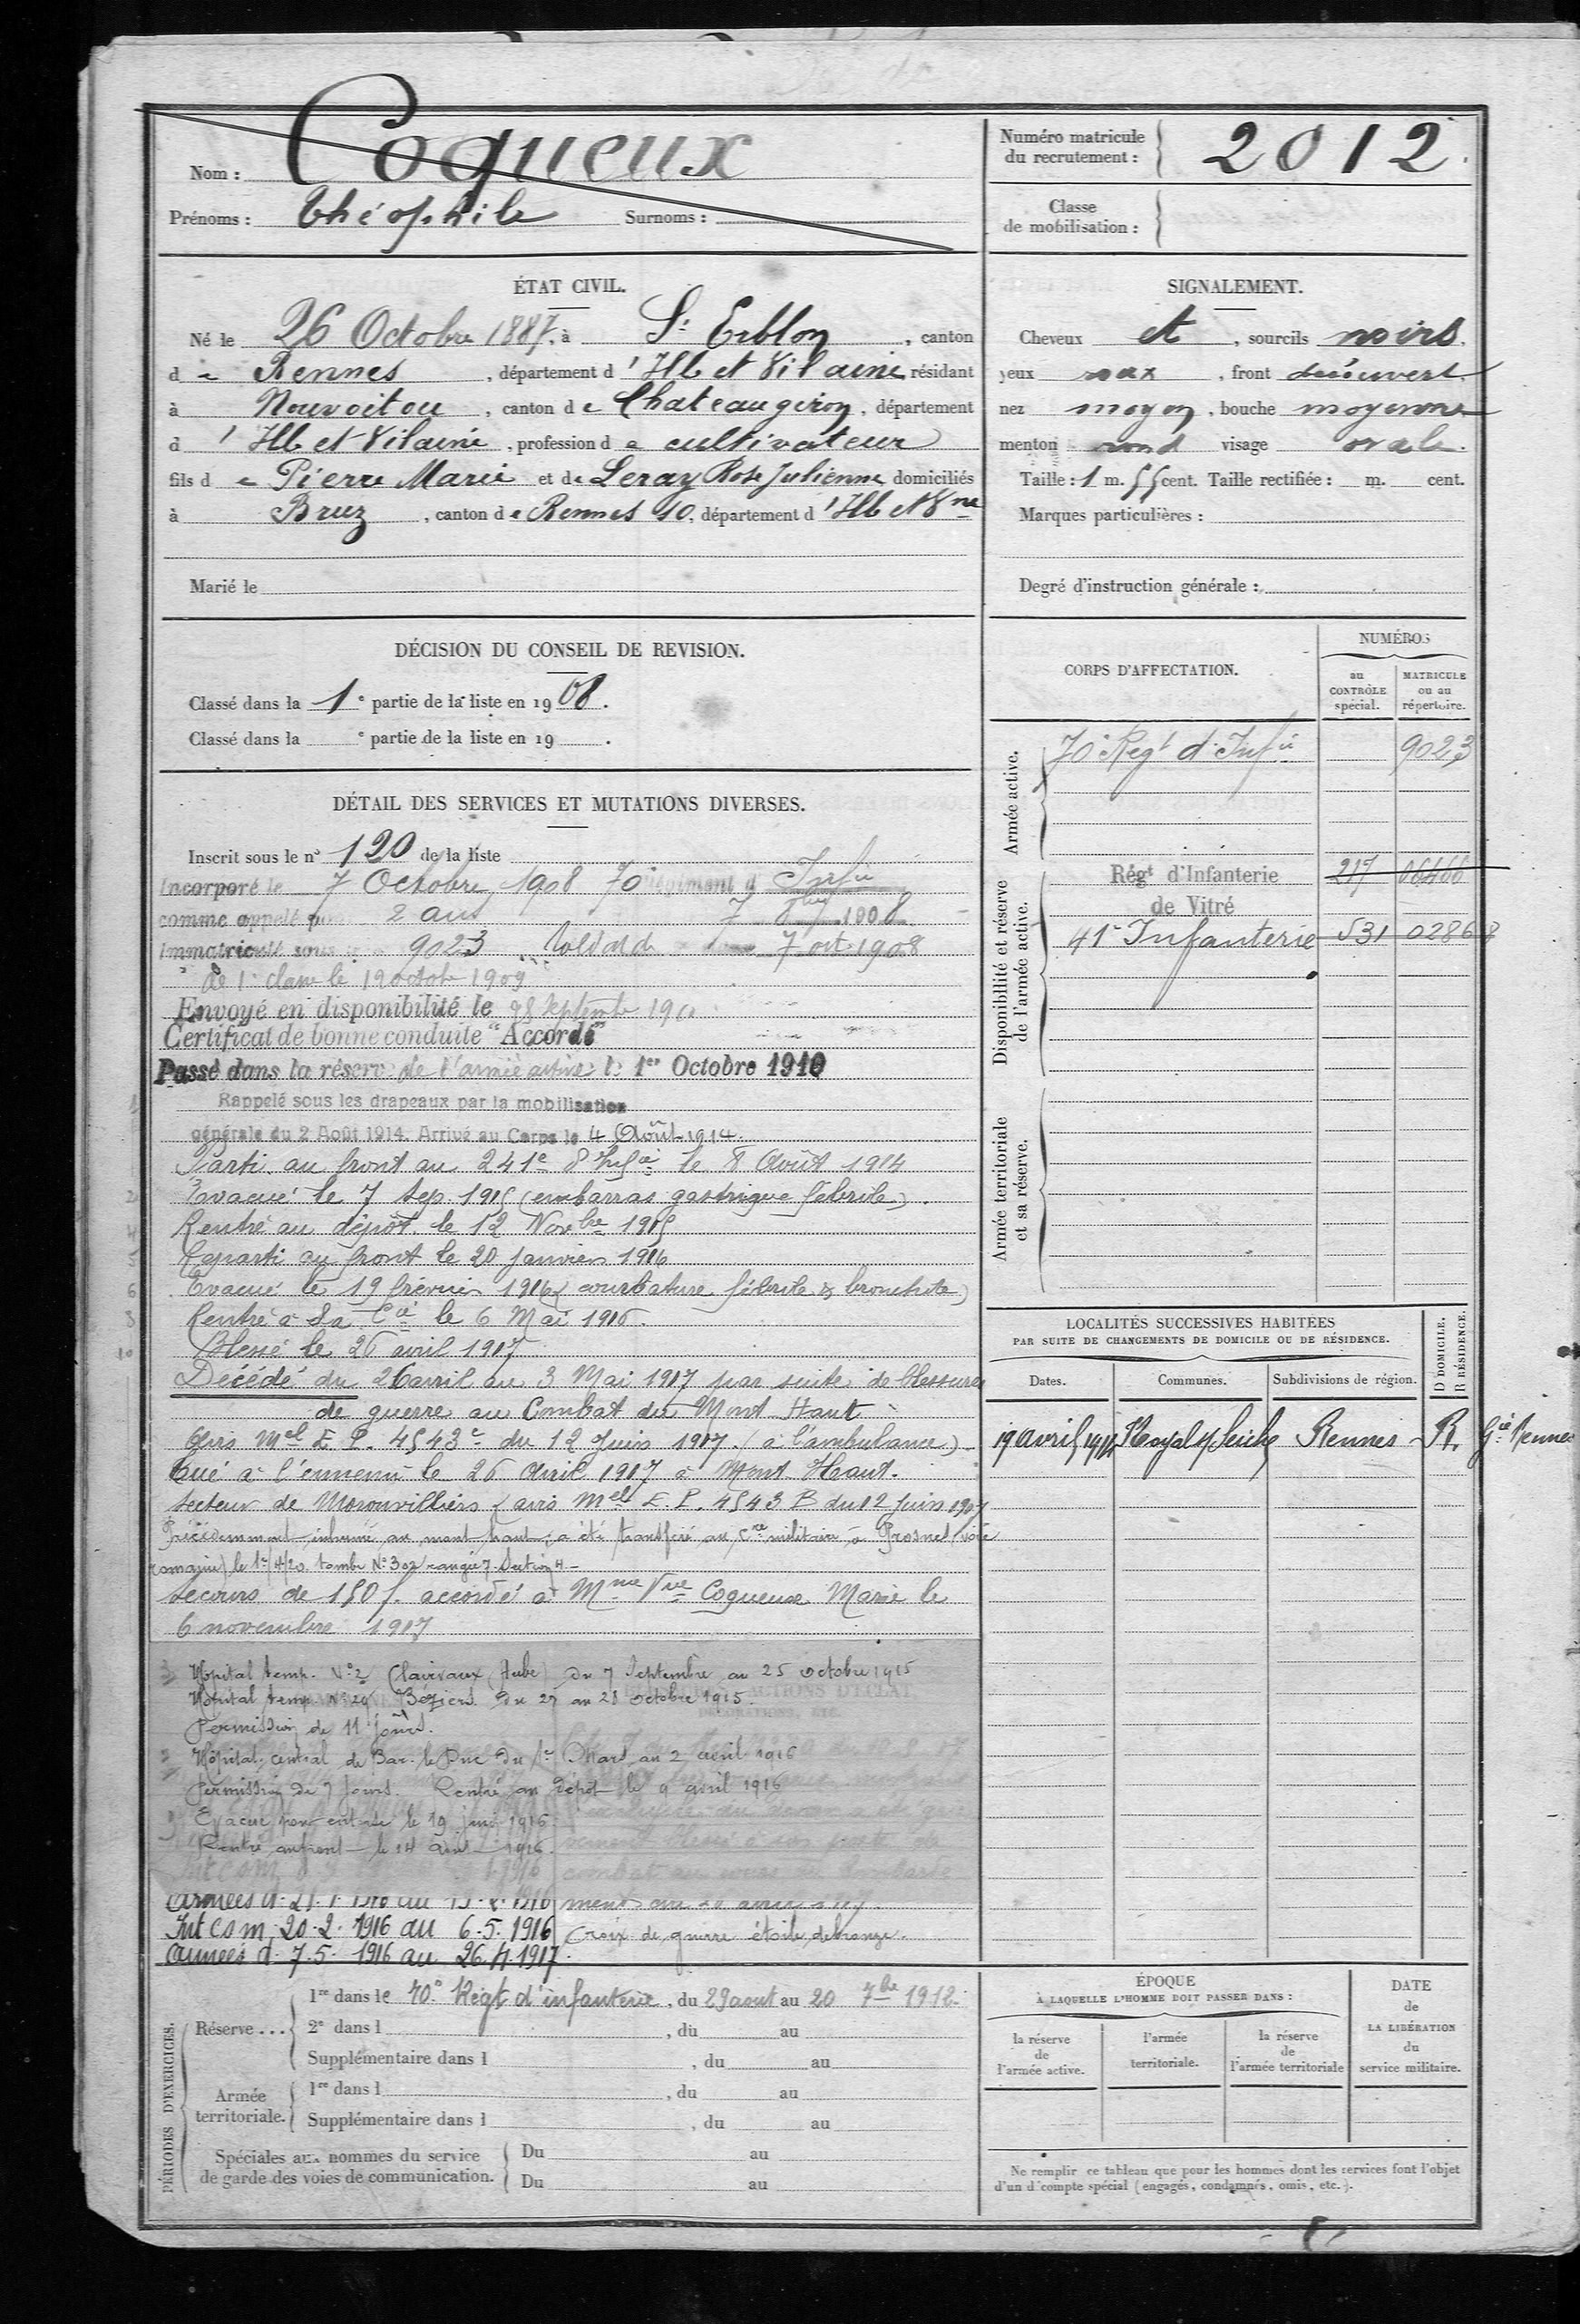 Nom : Coqueux
Prénoms : Théophile Surnoms :
Numéro matricule
du recrutement : 2012.
Classe
de mobilisation :
ÉTAT CIVIL.
Né le 26 Octobre 1887, à St Erblon, canton
de Rennes, département d'Ille et Vilaine, résidant
à Nouvoitou, canton de Chateaugiron, département
d'Ille et Vilaine, profession de cultivateur
fils de Pierre Marie et de Leray Rose Julienne domiciliés
à Bruz, canton de Rennes SO, département d'Ille et Vne
Marié le
SIGNALEMENT.
Cheveux et, sourcils noirs.
yeux roux, front découvert.
nez moyen, bouche moyenne
menton rond visage ovale.
Taille : 1 m. 55 cent. Taille rectifiée : m. cent.
Marques particulières :
Degré d'instruction générale :
DÉCISION DU CONSEIL DE REVISION.
Classé dans la 1e partie de la liste en 1908.
Classé dans la e partie de la liste en 19 .
DÉTAIL DES SERVICES ET MUTATIONS DIVERSES.
Inscrit sous le no 120 de la liste
Incorporé le 7 Octobre 1908 70e Régiment d'Infie
comme appelé 2 ans 7 8bre 1908
Immatriculé sous 9023 Soldat de 7 oct 1908
de 1e classe le 12 octobre 1909
Envoyé en disponibilité le 28 Septembre 1910
Certificat de bonne conduite "Accordé"
Passé dans la réserve de l'armée active le 1er Octobre 1910
Rappelé sous les drapeaux par la mobilisation
générale du 2 Août 1914. Arrivé au Corps le 4 Août 1914.
Parti au front au 241e d'Infie le 8 Août 1914
Evacué le 7 Sep. 1915 (embarras gastrique fébrile).
Rentré au dépôt le 12 Novbre 1915
Reparti au front le 20 janvier 1916
Evacué le 19 février 1916 (courbature fébrile & bronchite)
Rentré à sa Cie le 6 Mai 1916.
Blessé le 26 avril 1917
Décédé du 26 avril au 3 Mai 1917 par suite de blessures
de guerre au Combat du Mont Haut
Avis Mel E.P. 4543e du 12 Juin 1917. (à l'ambulance)
Tué à l'ennemi le 26 Avril 1917 à Mont Haut.
Secteur de Moronvilliers (avis Mel E.P. 4543 B du 12 Juin 1917
Précédemment inhumé au mont haut; a été transféré au Cre militaire à Prosnes (voie
romaine) le 1er/4/20. tombe No 302 rangée 7. Section 4 -
Secours de 150 f. accordé à Mme Vve Coqueux Marie le
6 novembre 1917
Hopital temp. No 2 Clairvaux (Aube) du 7 Septembre au 25 octobre 1915
Hopital temp. No 29 Béziers du 27 au 28 octobre 1915.
Permission de 11 jours.
Hôpital central de Bar-le-Duc du 1er Mars au 2 avril 1916
Permission de 7 jours. Rentré au dépôt le 9 avril 1916
Evacué pour le 19 juin 1916
Rentré au front le 14 août 1916.
ACTIONS D'ÉCLAT
DÉCORATIONS, ETC.
combat au cours
Armées d. 21.1.1916 au 19.2.1916
Int com 20.2.1916 au 6.5.1916 Croix de guerre étoile de bronze.
Armées d. 7.5.1916 au 26.4.1917.
CORPS D'AFFECTATION.
NUMÉROS
au CONTRÔLE spécial.
MATRICULE ou au répertoire.
Armée active.
70e Regt d'Infie 9023
Disponibilité et réserve de l'armée active.
Régt d'Infanterie 217 06466
de Vitré
41e Infanterie 531 02868
Armée territoriale et sa réserve.
LOCALITÉS SUCCESSIVES HABITÉES
PAR SUITE DE CHANGEMENTS DE DOMICILE OU DE RÉSIDENCE.
D DOMICILE.
R RÉSIDENCE.
Dates. Communes. Subdivisions de région.
19 avril 1914 Noyal s/ Seiche Rennes R. Gie Rennes
PÉRIODES D'EXERCICES.
Réserve... 1re dans le 70e Régt d'infanterie, du 29 aout au 20 7bre 1912.
2e dans l , du au
Supplémentaire dans l , du au
Armée territoriale. 1re dans l , du au
Supplémentaire dans l , du au
Spéciales aux hommes du service
de garde des voies de communication.
Du au
Du au
ÉPOQUE
À LAQUELLE L'HOMME DOIT PASSER DANS :
la réserve de l'armée active.
l'armée territoriale.
la réserve de l'armée territoriale
DATE
de
LA LIBÉRATION
du
service militaire.
Ne remplir ce tableau que pour les hommes dont les services font l'objet
d'un décompte spécial (engagés, condamnés, omis, etc.).